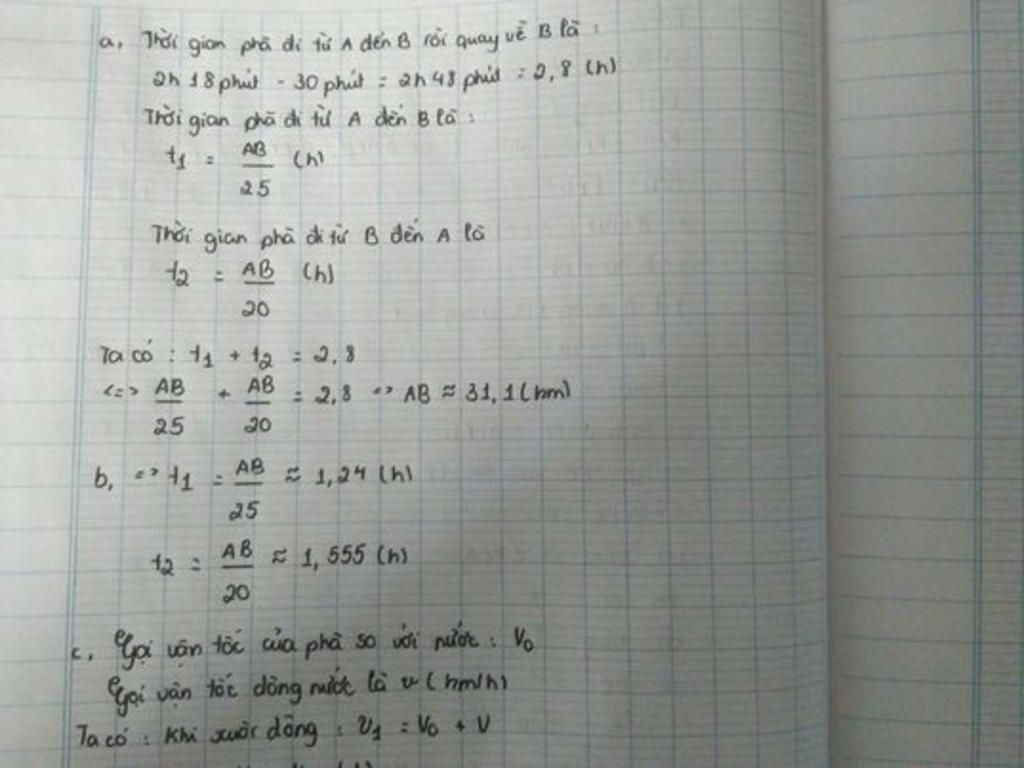 a, Thời gian phà đi từ A đến B rồi quay về B là :
2h 18 phút - 30 phút = 2h 48 phút = 2,8 (h)
Thời gian phà đi từ A đến B là :
t1 = AB/25 (h)
Thời gian phà đi từ B đến A là
t2 = AB/20 (h)
Ta có : t1 + t2 = 2,8
<=> AB/25 + AB/20 = 2,8 => AB ≈ 31,1 (km)
b, => t1 = AB/25 ≈ 1,24 (h)
t2 = AB/20 ≈ 1,555 (h)
c, Gọi vận tốc của phà so với nước : V0
Gọi vận tốc dòng nước là v (km/h)
Ta có : Khi xuôi dòng : v1 = V0 + V